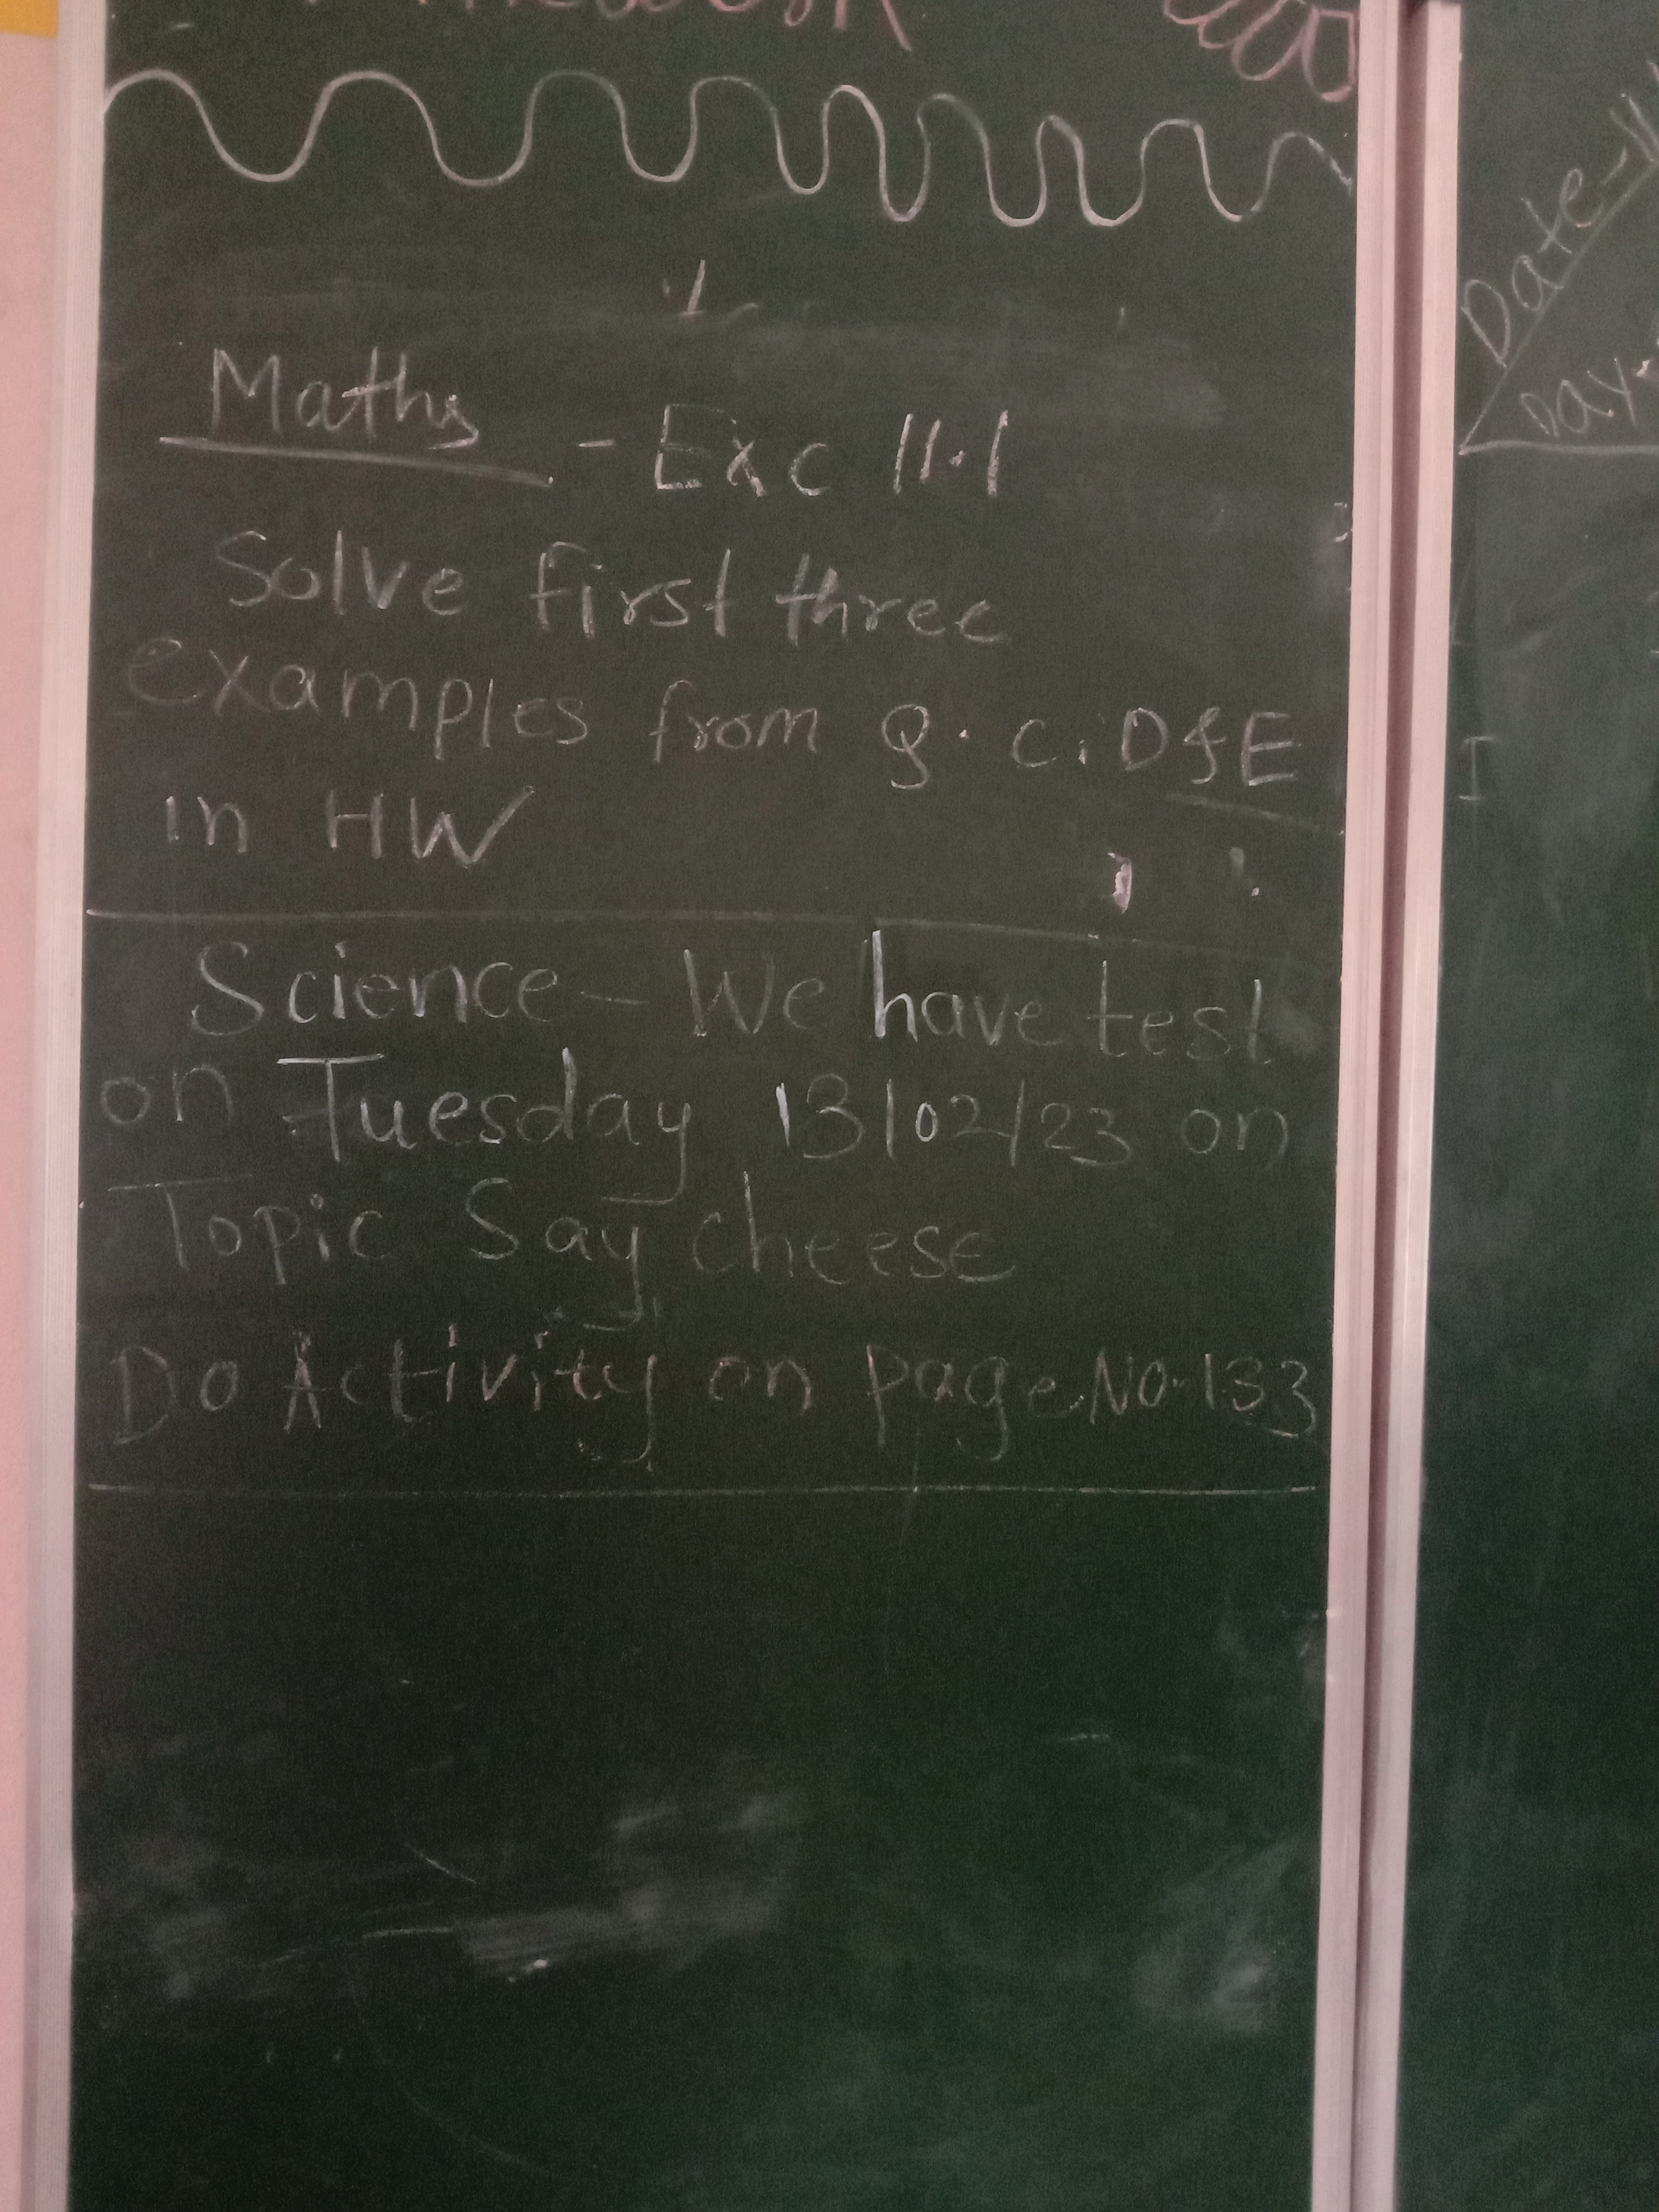 Maths - Exc 11.1
Solve first three
examples from Q. C, D & E
in HW
Science - We have test
on Tuesday 13/02/23 on
Topic Say cheese
Do Activity on page No. 133
Date -
Day